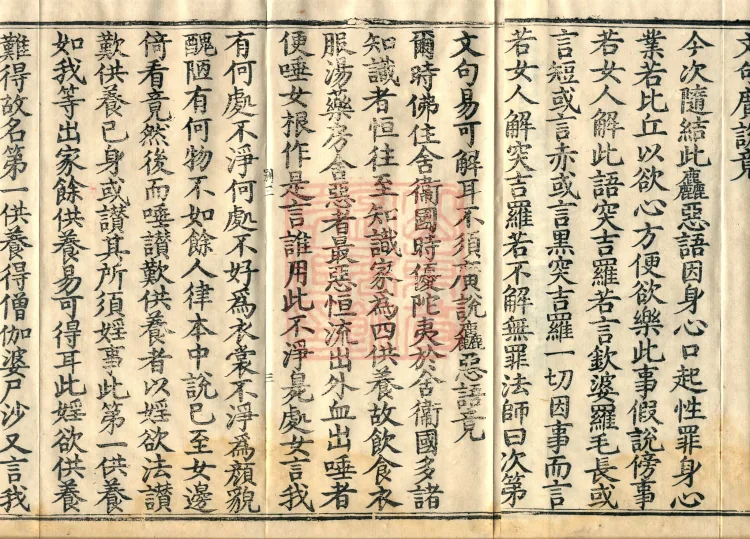 文句廣說竟
今次隨結此麤惡語因身心口起性罪身心
業若比丘以欲心方便欲樂此事假說傍事
若女人解此語突吉羅若言欽婆羅毛長或
言短或言赤或言黑突吉羅一切因事而言
若女人解突吉羅若不解無罪法師曰次第
文句易可解耳不須廣說麤惡語竟
爾時佛住舍衞國時優陀夷於舍衞國多諸
知識者恒往至知識家為四供養故飲食衣
服湯藥房舍惡者最惡恒流出外血出唾者
便唾女根作是言誰用此不淨臭處女言我
有何處不淨何處不好為衣裳不淨為顏貌
醜陋有何物不如餘人律本中說已至女邊
倚看竟然後而唾讚歎供養者以婬欲法讚
歎供養已身或讚其所須婬事此第一供養
如我等出家餘供養易可得耳此婬欲供養
難得故名第一供養得僧伽婆尸沙又言我